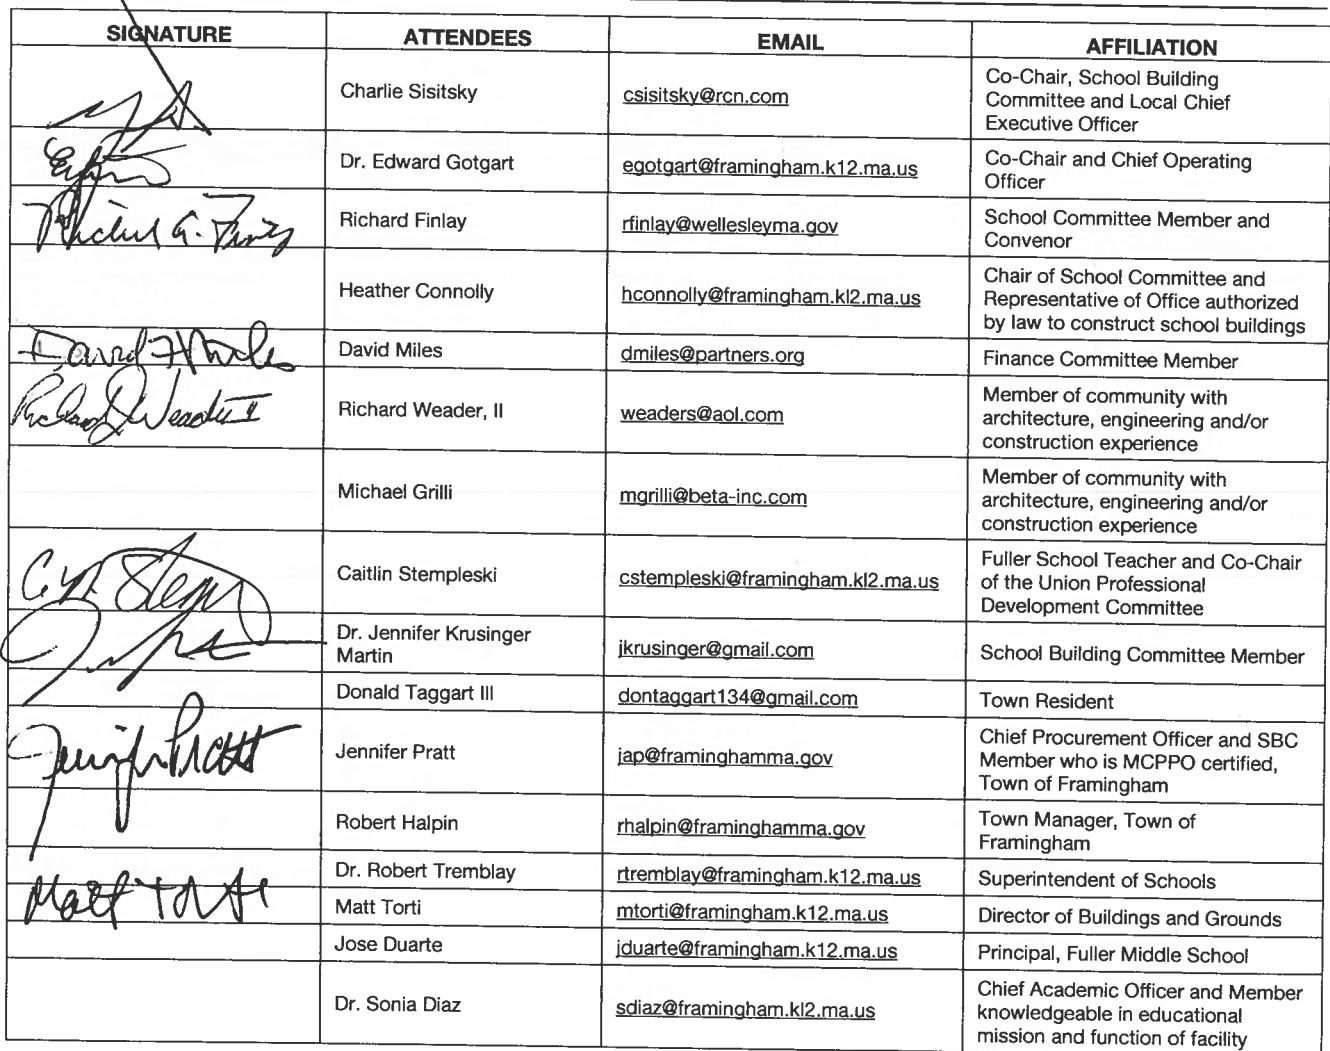 SIGNATURE ATTENDEES EMAIL AFFILIATION
Charlie Sisitsky csisitsky@rcn.com Co-Chair, School Building
Committee and Local Chief
Executive Officer
Dr. Edward Gotgart egotgart@framingham.k12.ma.us Co-Chair and Chief Operating
Officer
Richard Finlay rfinlay@wellesleyma.gov School Committee Member and
Convenor
Heather Connolly hconnolly@framingham.kl2.ma.us Chair of School Committee and
Representative of Office authorized
by law to construct school buildings
David Miles David Miles dmiles@partners.org Finance Committee Member
Richard J Weader II Richard Weader, II weaders@aol.com Member of community with
architecture, engineering and/or
construction experience
Michael Grilli mgrilli@beta-inc.com Member of community with
architecture, engineering and/or
construction experience
Caitlin Stempleski cstempleski@framingham.kl2.ma.us Fuller School Teacher and Co-Chair
of the Union Professional
Development Committee
Dr. Jennifer Krusinger
Martin jkrusinger@gmail.com School Building Committee Member
Donald Taggart III dontaggart134@gmail.com Town Resident
Jennifer Pratt Jennifer Pratt jap@framinghamma.gov Chief Procurement Officer and SBC
Member who is MCPPO certified,
Town of Framingham
Robert Halpin rhalpin@framinghamma.gov Town Manager, Town of
Framingham
Dr. Robert Tremblay rtremblay@framingham.k12.ma.us Superintendent of Schools
Matt Torti Matt Torti mtorti@framingham.k12.ma.us Director of Buildings and Grounds
Jose Duarte jduarte@framingham.k12.ma.us Principal, Fuller Middle School
Dr. Sonia Diaz sdiaz@framingham.kl2.ma.us Chief Academic Officer and Member
knowledgeable in educational
mission and function of facility